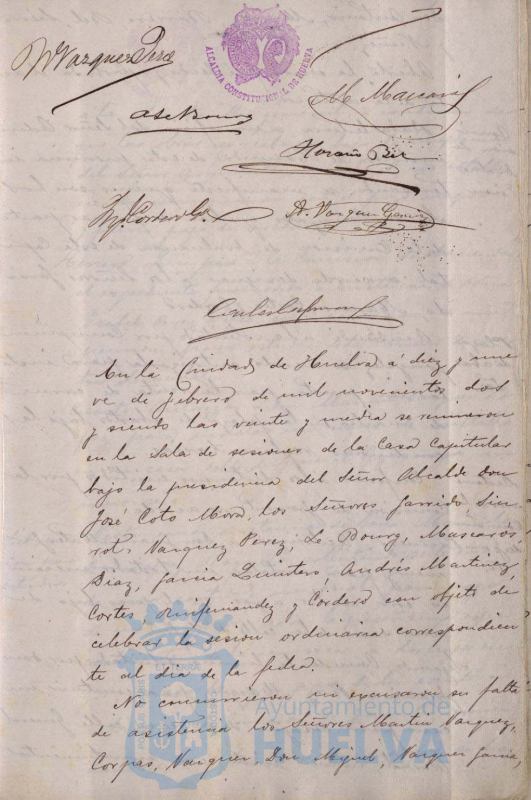 M Vazquez Perez
ALCALDIA CONSTITUCIONAL DE HUELVA
A Le Bourg
M Mascarós
Horacio Bel
A. Vazquez Garcia
En la Ciudad de Huelva á diez y nue
ve de febrero de mil novecientos dos
y siendo las veinte y media se reunieron
en la Sala de sesiones de la Casa Capitular
bajo la presidencia del Señor Alcalde Don
José Coto Mora, los Señores Garrido, Sin
rot, Vazquez Perez, Le Bourg, Mascarós
Diaz, Garcia Quintero, Andrés Martinez
Cortes, y Cordero con objeto de
celebrar la sesion ordinaria correspondien
te al dia de la fecha.
No concurrieron ni excusaron su falta
de asistencia los Señores Martin Vazquez,
Corpas, Vazquez, Don Miguel, Vazquez Garcia,
Ayuntamiento de
HUELVA